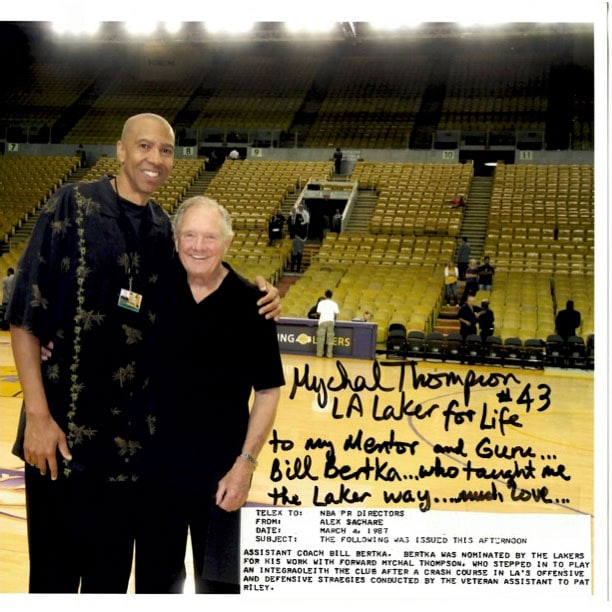 7
8
9
10
11
ING LAKERS
Mychal Thompson
#43
LA Laker for Life
to my Mentor and Guru...
Bill Bertka...who taught me
the Laker way....much love...
TELEX TO: NBA PR DIRECTORS
FROM: ALEX SACHARE
DATE: MARCH 4, 1987
SUBJECT: THE FOLLOWING WAS ISSUED THIS AFTERNOON
ASSISTANT COACH BILL BERTKA. BERTKA WAS NOMINATED BY THE LAKERS
FOR HIS WORK WITH FORWARD MYCHAL THOMPSON, WHO STEPPED IN TO PLAY
AN INTEGRAOLEITH THE CLUB AFTER A CRASH COURSE IN LA'S OFFENSIVE
AND DEFENSIVE STRAEGIES CONDUCTED BY THE VETERAN ASSISTANT TO PAT
RILEY.